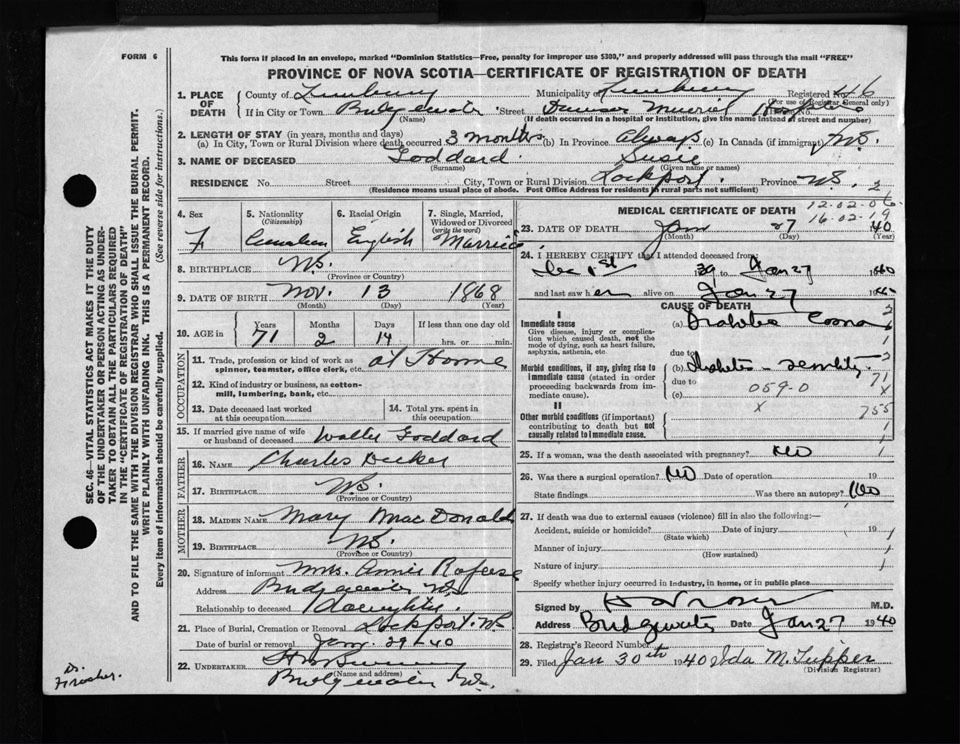 FORM 6
This form if placed in an envelope, marked "Dominion Statistics—Free, penalty for improper use $300," and properly addressed will pass through the mail "FREE"
PROVINCE OF NOVA SCOTIA—CERTIFICATE OF REGISTRATION OF DEATH
1. PLACE OF DEATH
County of Lunenburg Municipality of Lunenburg Registered No. 46
(For use of Registrar General only)
If in City or Town Bridgewater Street Memorial Hospital
(Name) (If death occurred in a hospital or institution, give the name instead of street and number)
2. LENGTH OF STAY (in years, months and days)
(a) In City, Town or Rural Division where death occurred 3 months (b) In Province always (c) In Canada (if immigrant)
3. NAME OF DECEASED Goddard Susie
(Surname) (Given name or names)
RESIDENCE No. Street City, Town or Rural Division Lockport. Province N.S. 2
(Residence means usual place of abode. Post Office Address for residents in rural parts not sufficient)
4. Sex F
5. Nationality (Citizenship) Canadian
6. Racial Origin English
7. Single, Married, Widowed or Divorced (write the word) Married
8. BIRTHPLACE N.S.
(Province or Country)
9. DATE OF BIRTH Nov. 13 1868
(Month) (Day) (Year)
10. AGE in Years Months Days If less than one day old
71 2 14 hrs. or min.
OCCUPATION
11. Trade, profession or kind of work as spinner, teamster, office clerk, etc. at Home
12. Kind of industry or business, as cotton-mill, lumbering, bank, etc.
13. Date deceased last worked at this occupation
14. Total yrs. spent in this occupation
15. If married give name of wife or husband of deceased Walter Goddard
FATHER
16. NAME Charles Decker
17. BIRTHPLACE N.S.
(Province or Country)
MOTHER
18. MAIDEN NAME Mary MacDonald
19. BIRTHPLACE N.S.
(Province or Country)
20. Signature of informant Mrs. Annie Rafuse
Address Bridgewater, N.S.
Relationship to deceased Daughter.
21. Place of Burial, Cremation or Removal Lockport. N.S.
Date of burial or removal Jan. 29-40
22. UNDERTAKER
(Name and address)
Bridgewater N.S.
MEDICAL CERTIFICATE OF DEATH
12-02-06
16-02-19
23. DATE OF DEATH Jan 27 40
(Month) (Day) (Year)
24. I HEREBY CERTIFY that I attended deceased from:
Dec 1st 39 to Jan 27 1940
and last saw her alive on Jan 27 1940
CAUSE OF DEATH
I
Immediate cause (a) Diabetic Coma
Give disease, injury or complication which caused death, not the mode of dying, such as heart failure, asphyxia, asthenia, etc.
due to
Morbid conditions, if any, giving rise to immediate cause (stated in order proceeding backwards from immediate cause). (b) Diabetes – senility
due to 059-0
(c)
71
x
x
755
II
Other morbid conditions (if important) contributing to death but not causally related to immediate cause.
25. If a woman, was the death associated with pregnancy? No
26. Was there a surgical operation? No Date of operation 19
State findings Was there an autopsy? No
27. If death was due to external causes (violence) fill in also the following:—
Accident, suicide or homicide? Date of injury 19
(State which)
Manner of injury
(How sustained)
Nature of injury
Specify whether injury occurred in industry, in home, or in public place
Signed by M.D.
Address Bridgewater Date Jan 27 1940
28. Registrar's Record Number
29. Filed Jan 30th 1940 Ida M. Tupper
(Division Registrar)
SEC. 46—VITAL STATISTICS ACT MAKES IT THE DUTY OF THE UNDERTAKER OR PERSON ACTING AS UNDERTAKER TO OBTAIN ALL THE PARTICULARS REQUIRED IN THE "CERTIFICATE OF REGISTRATION OF DEATH" AND TO FILE THE SAME WITH THE DIVISION REGISTRAR WHO SHALL ISSUE THE BURIAL PERMIT.
WRITE PLAINLY WITH UNFADING INK. THIS IS A PERMANENT RECORD.
Every item of information should be carefully supplied. (See reverse side for instructions.)